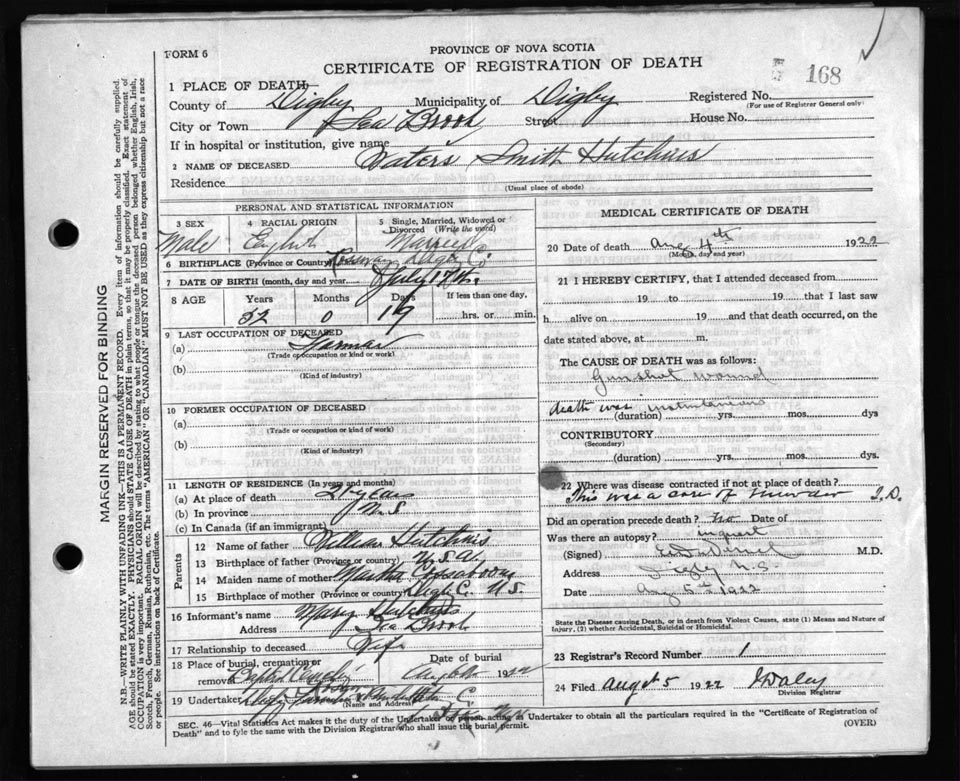 FORM 6
PROVINCE OF NOVA SCOTIA
CERTIFICATE OF REGISTRATION OF DEATH
168
1 PLACE OF DEATH
County of Digby Municipality of Digby Registered No.
(For use of Registrar General only)
City or Town Sea Brook Street House No.
If in hospital or institution, give name
2 NAME OF DECEASED Waters Smith Hutchins
Residence
(Usual place of abode)
PERSONAL AND STATISTICAL INFORMATION
3 SEX 4 RACIAL ORIGIN 5 Single, Married, Widowed or Divorced (Write the word)
Male English Married
6 BIRTHPLACE (Province or Country) Rossway Digby C.
7 DATE OF BIRTH (month, day and year) July 17th
8 AGE Years Months Days If less than one day,
52 0 19 hrs. or min.
9 LAST OCCUPATION OF DECEASED
(a) Farmer
(Trade or occupation or kind or work)
(b)
(Kind of industry)
10 FORMER OCCUPATION OF DECEASED
(a)
(Trade or occupation or kind of work)
(b)
(Kind of industry)
11 LENGTH OF RESIDENCE (In years and months)
(a) At place of death 21 years
(b) In province N.S
(c) In Canada (if an immigrant)
Parents
12 Name of father William Hutchins
13 Birthplace of father (Province or country) N.S.
14 Maiden name of mother Martha
15 Birthplace of mother (Province or country) Digby C. N.S.
16 Informant's name Mary Hutchins
Address Sea Brook
17 Relationship to deceased Wife
18 Place of burial, cremation or removal Baptist Date of burial Aug 6th 1922
19 Undertaker
(Name and Address)
MEDICAL CERTIFICATE OF DEATH
20 Date of death Aug 4th 1922
(Month, day and year)
21 I HEREBY CERTIFY, that I attended deceased from
19 to 19 that I last saw
h alive on 19 and that death occurred, on the
date stated above, at m.
The CAUSE OF DEATH was as follows:
Gunshot wound
death was instantaneous
(duration) yrs. mos. dys
CONTRIBUTORY
(Secondary)
(duration) yrs. mos. dys.
22 Where was disease contracted if not at place of death?
This was a case of murder
Did an operation precede death? no Date of
Was there an autopsy? inquest
(Signed) M.D.
Address Digby N.S.
Date Aug 5th 1922
State the Disease causing Death, or in death from Violent Causes, state (1) Means and Nature of
Injury, (2) whether Accidental, Suicidal or Homicidal.
23 Registrar's Record Number 1
24 Filed August 5 1922 Daley
Division Registrar
SEC. 46—Vital Statistics Act makes it the duty of the Undertaker or person acting as Undertaker to obtain all the particulars required in the "Certificate of Registration of
Death" and to fyle the same with the Division Registrar who shall issue the burial permit.
(OVER)
MARGIN RESERVED FOR BINDING
N.B.—WRITE PLAINLY WITH UNFADING INK—THIS IS A PERMANENT RECORD. Every item of information should be carefully supplied.
AGE should be stated EXACTLY. PHYSICIANS should STATE CAUSE OF DEATH in plain terms, so that it may be properly classified. Exact statement of
OCCUPATION is very important. RACIAL ORIGIN will be described by stating to what people or tongue the deceased person belonged whether English, Irish,
Scotch, French, German, Russian, Ruthenian, etc. The terms "AMERICAN" OR "CANADIAN" MUST NOT BE USED as they express citizenship but not a race
or people. See instructions on back of Certificate.